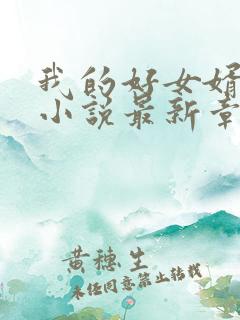 我的好女婿
小说最新章
黄穗生
未经同意禁止转载